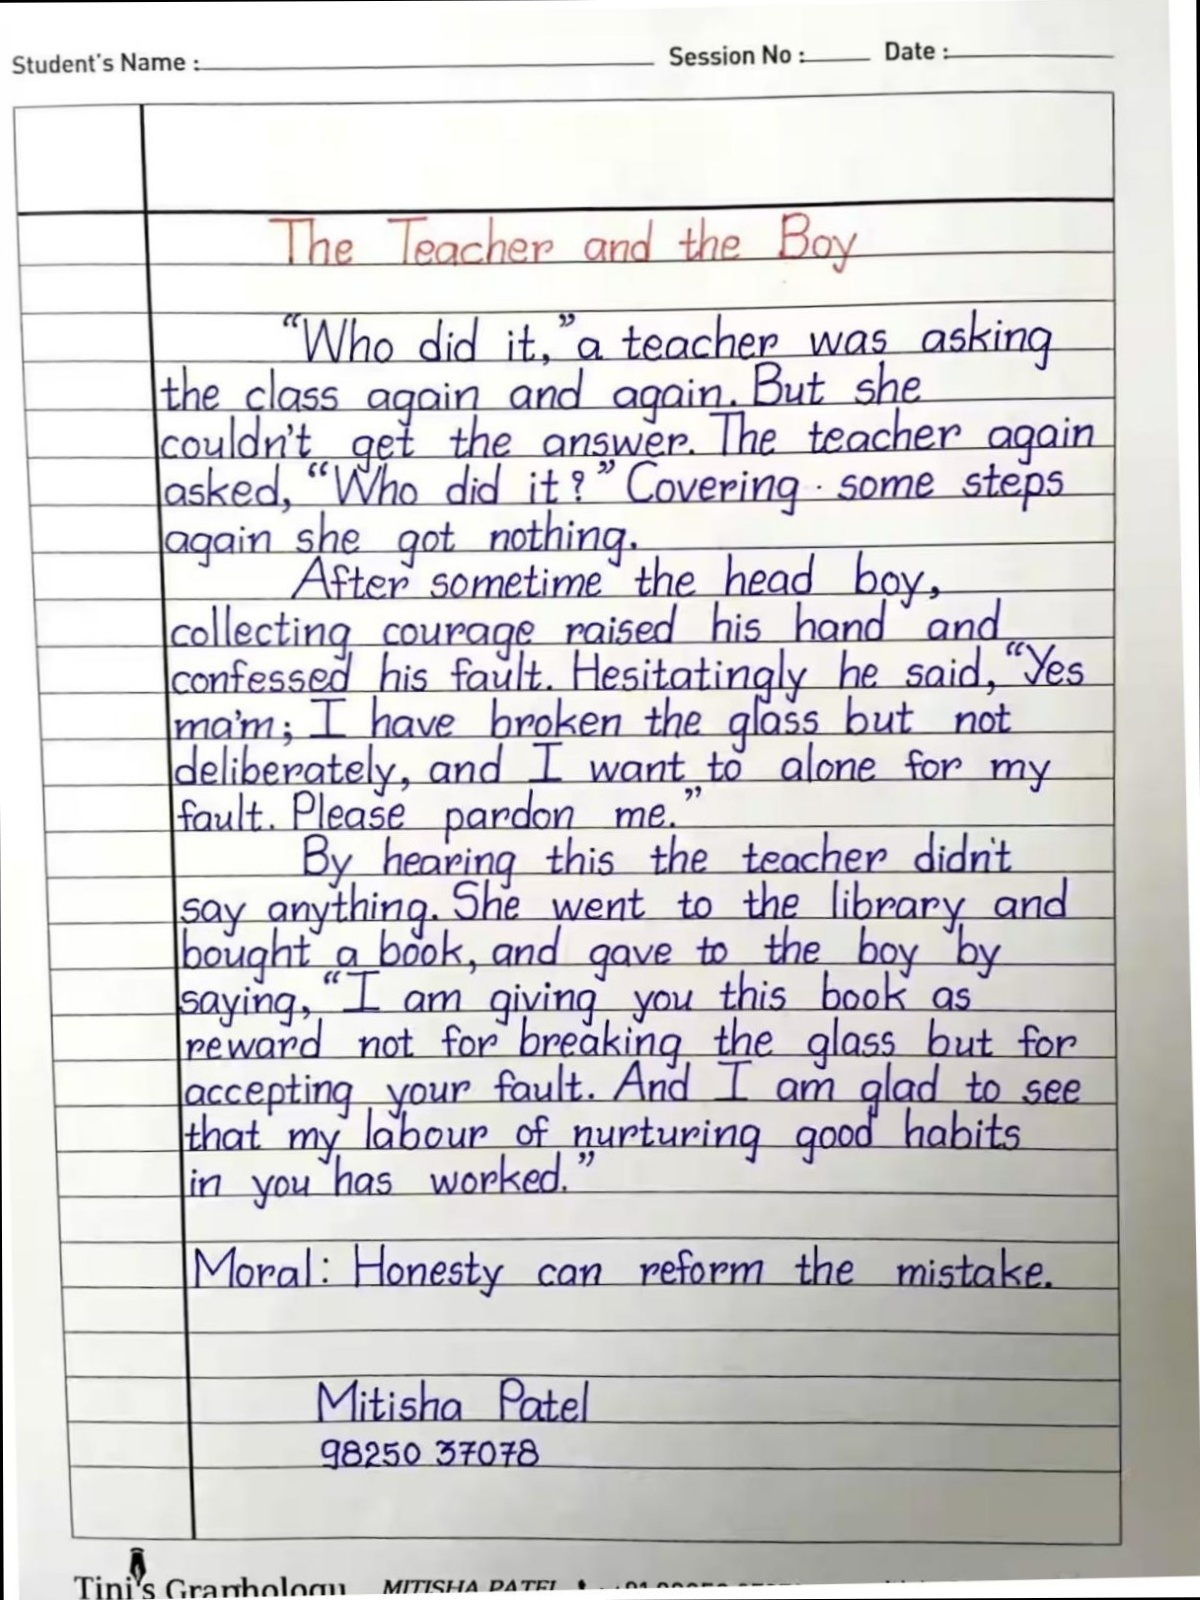 Student's Name : Session No : Date :
The Teacher and the Boy
"Who did it," a teacher was asking
the class again and again. But she
couldn't get the answer. The teacher again
asked, "Who did it?" Covering some steps
again she got nothing.
After sometime the head boy,
collecting courage raised his hand and
confessed his fault. Hesitatingly he said, "Yes
ma'm; I have broken the glass but not
deliberately, and I want to alone for my
fault. Please pardon me."
By hearing this the teacher didn't
say anything. She went to the library and
bought a book, and gave to the boy by
saying, "I am giving you this book as
reward not for breaking the glass but for
accepting your fault. And I am glad to see
that my labour of nurturing good habits
in you has worked."
Moral: Honesty can reform the mistake.
Mitisha Patel
98250 37078
Tini's Graphology MITISHA PATEL